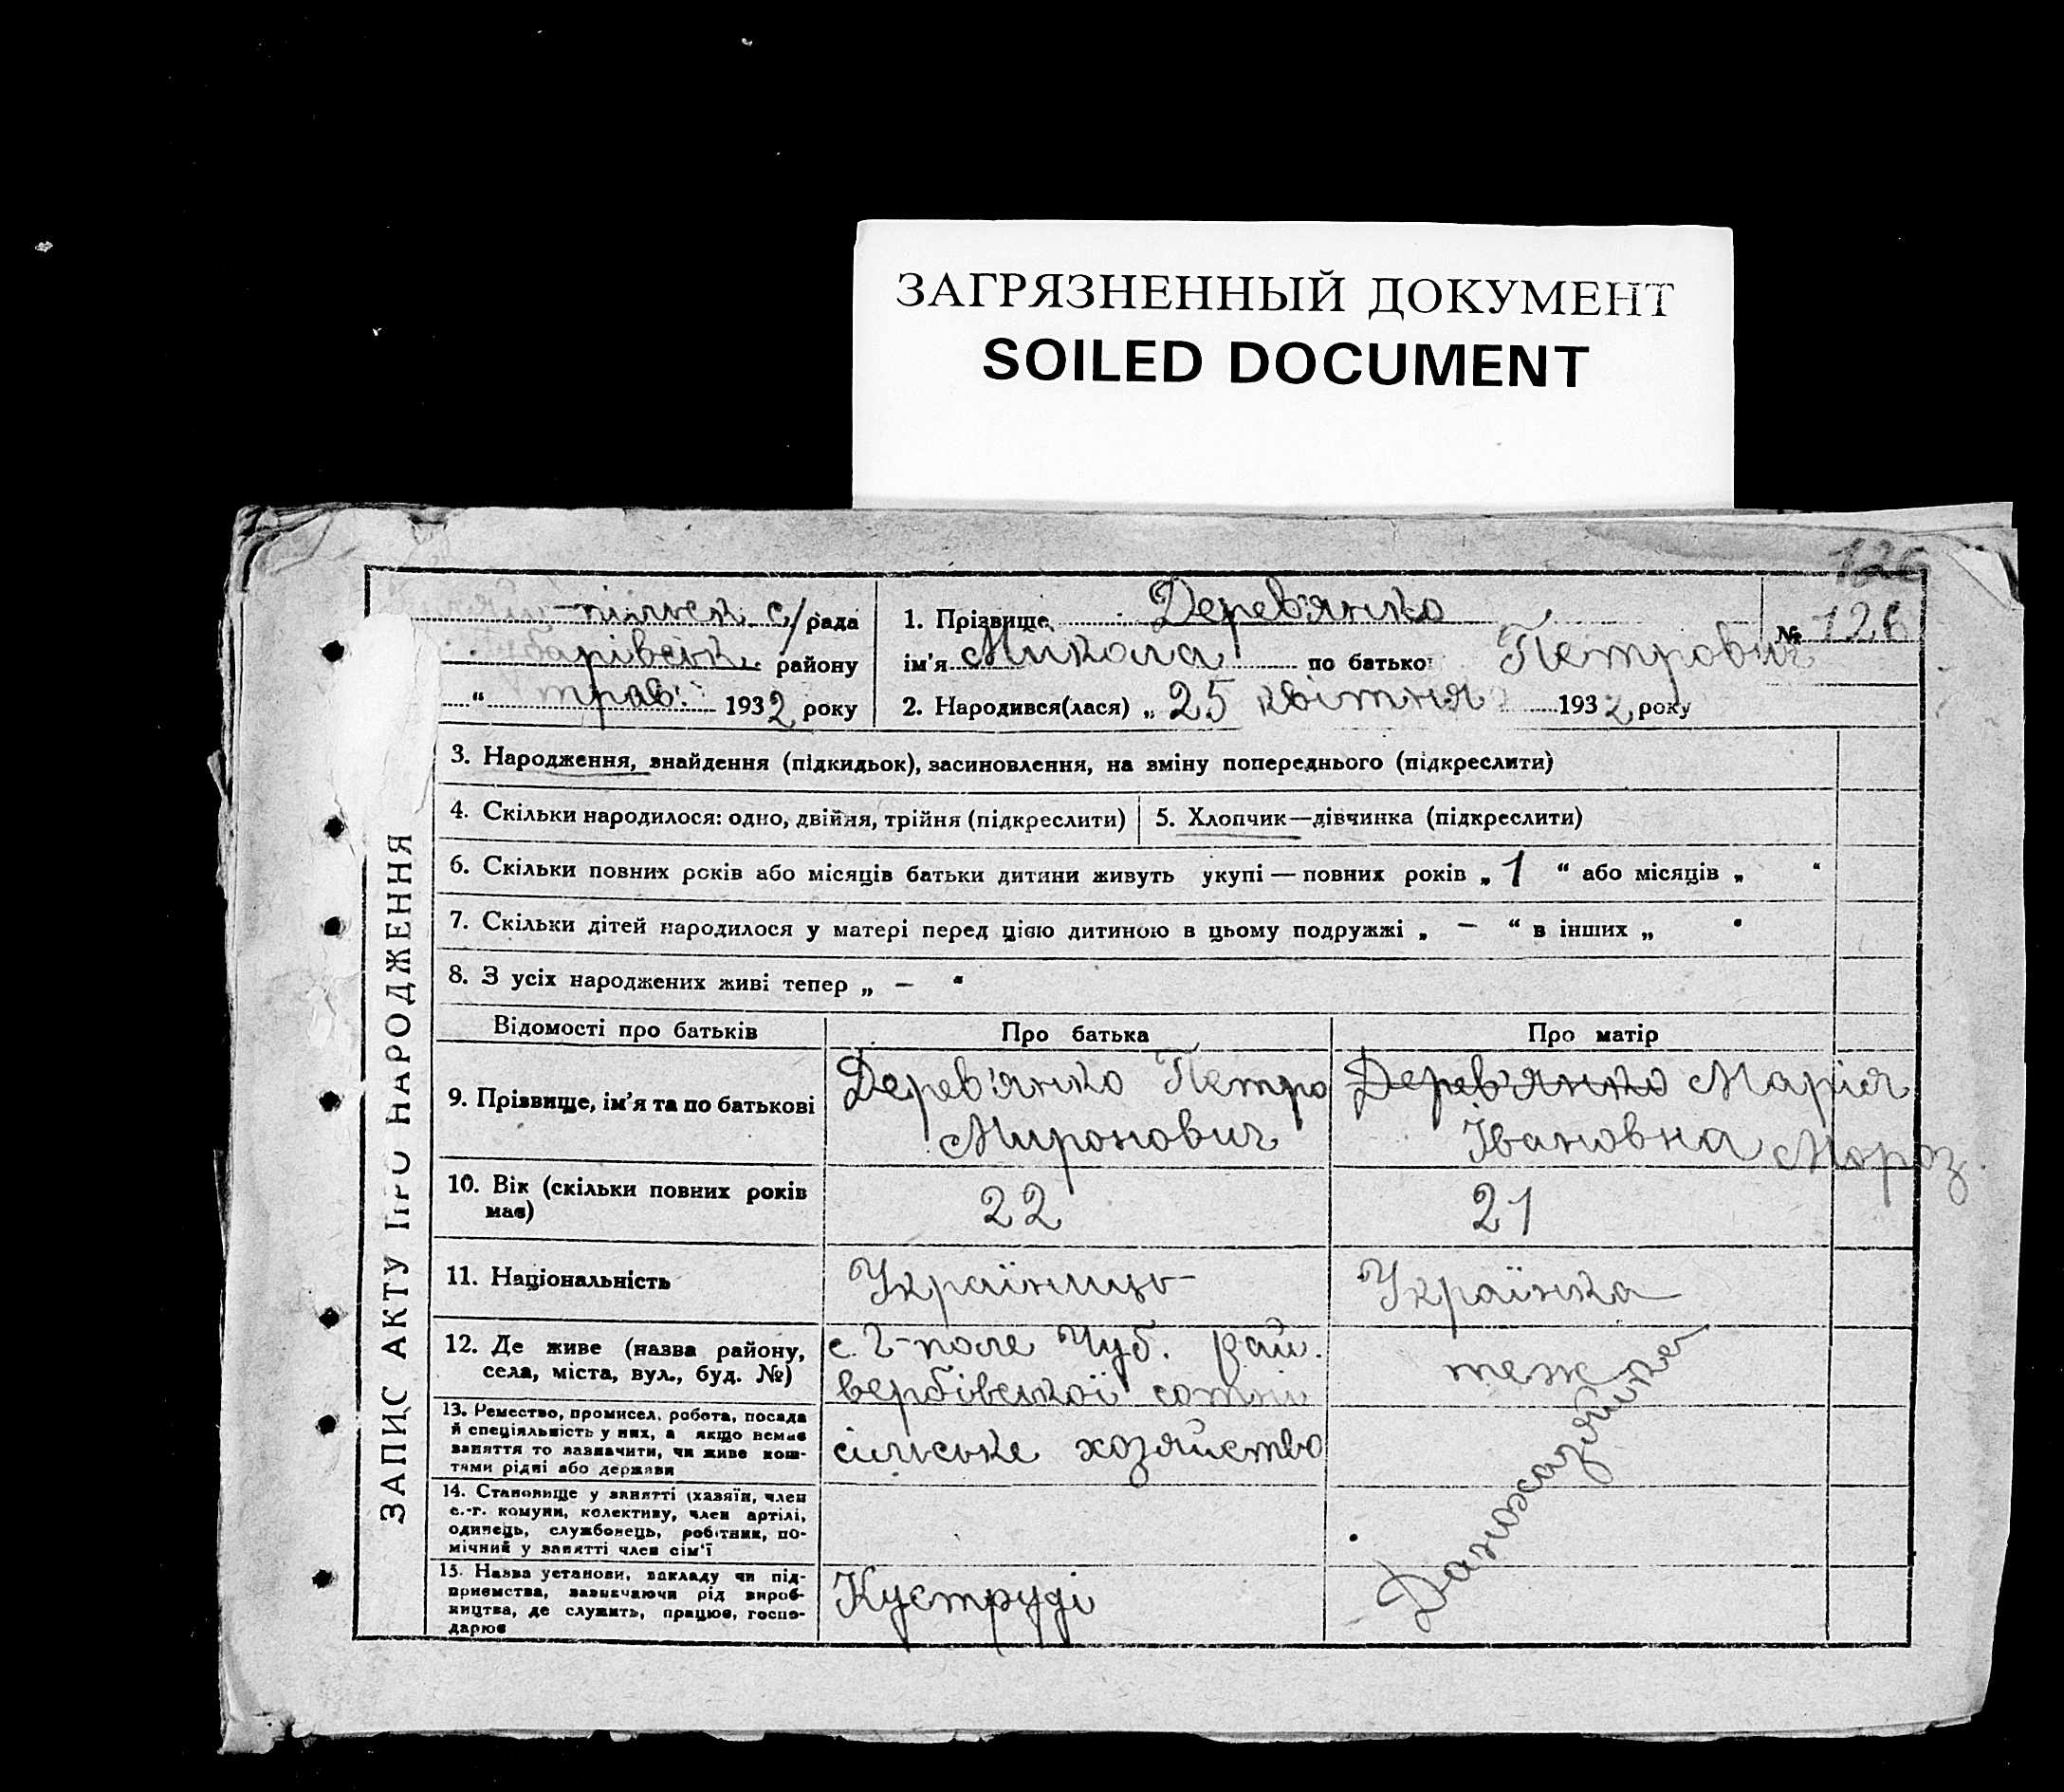 ЗАГРЯЗНЕННЫЙ ДОКУМЕНТ
SOILED DOCUMENT
126
-пільск с/рада
барівськ. району
“ трав. 1932 року
1. Прізвище Дерев'янко
№ 126
ім'я Микола по батько Петрович
2. Народився(лася) „ 25 квітня 1932 року
ЗАПИС АКТУ ПРО НАРОДЖЕННЯ
3. Народження, знайдення (підкидьок), засиновлення, на зміну попереднього (підкреслити)
4. Скільки народилося: одно, двійня, трійня (підкреслити)
5. Хлопчик—дівчинка (підкреслити)
6. Скільки повних років або місяців батьки дитини живуть укупі — повних років „ 1 “ або місяців „ “
7. Скільки дітей народилося у матері перед цією дитиною в цьому подружжі „ — “ в інших „ “
8. З усіх народжених живі тепер „ — “
Відомості про батьків
Про батька
Про матір
9. Прізвище, ім'я та по батькові
Дерев'янко Петро
Миронович
Дерев'янко Марія
Івановна Мороз.
10. Вік (скільки повних років
має)
22
21
11. Національність
Українець
Українка
12. Де живе (назва району,
села, міста, вул., буд. №)
с. Г-поле Чуб. рай.
вербівської сотні
теж
13. Ремество, промисел, робота, посада
й спеціяльність у них, а якщо немає
заняття то зазначити, чи живе кош-
тами рідні або держави
сільське хозяйство
14. Становище у занятті (хазяїн, член
с.-г. комуни, колективу, член артілі,
одинець, службовець, робітник, по-
мічний у занятті член сім'ї
15. Назва установи, закладу чи під-
приємства, зазначаючи рід вироб-
ництва, де служить, працює, госпо-
дарює